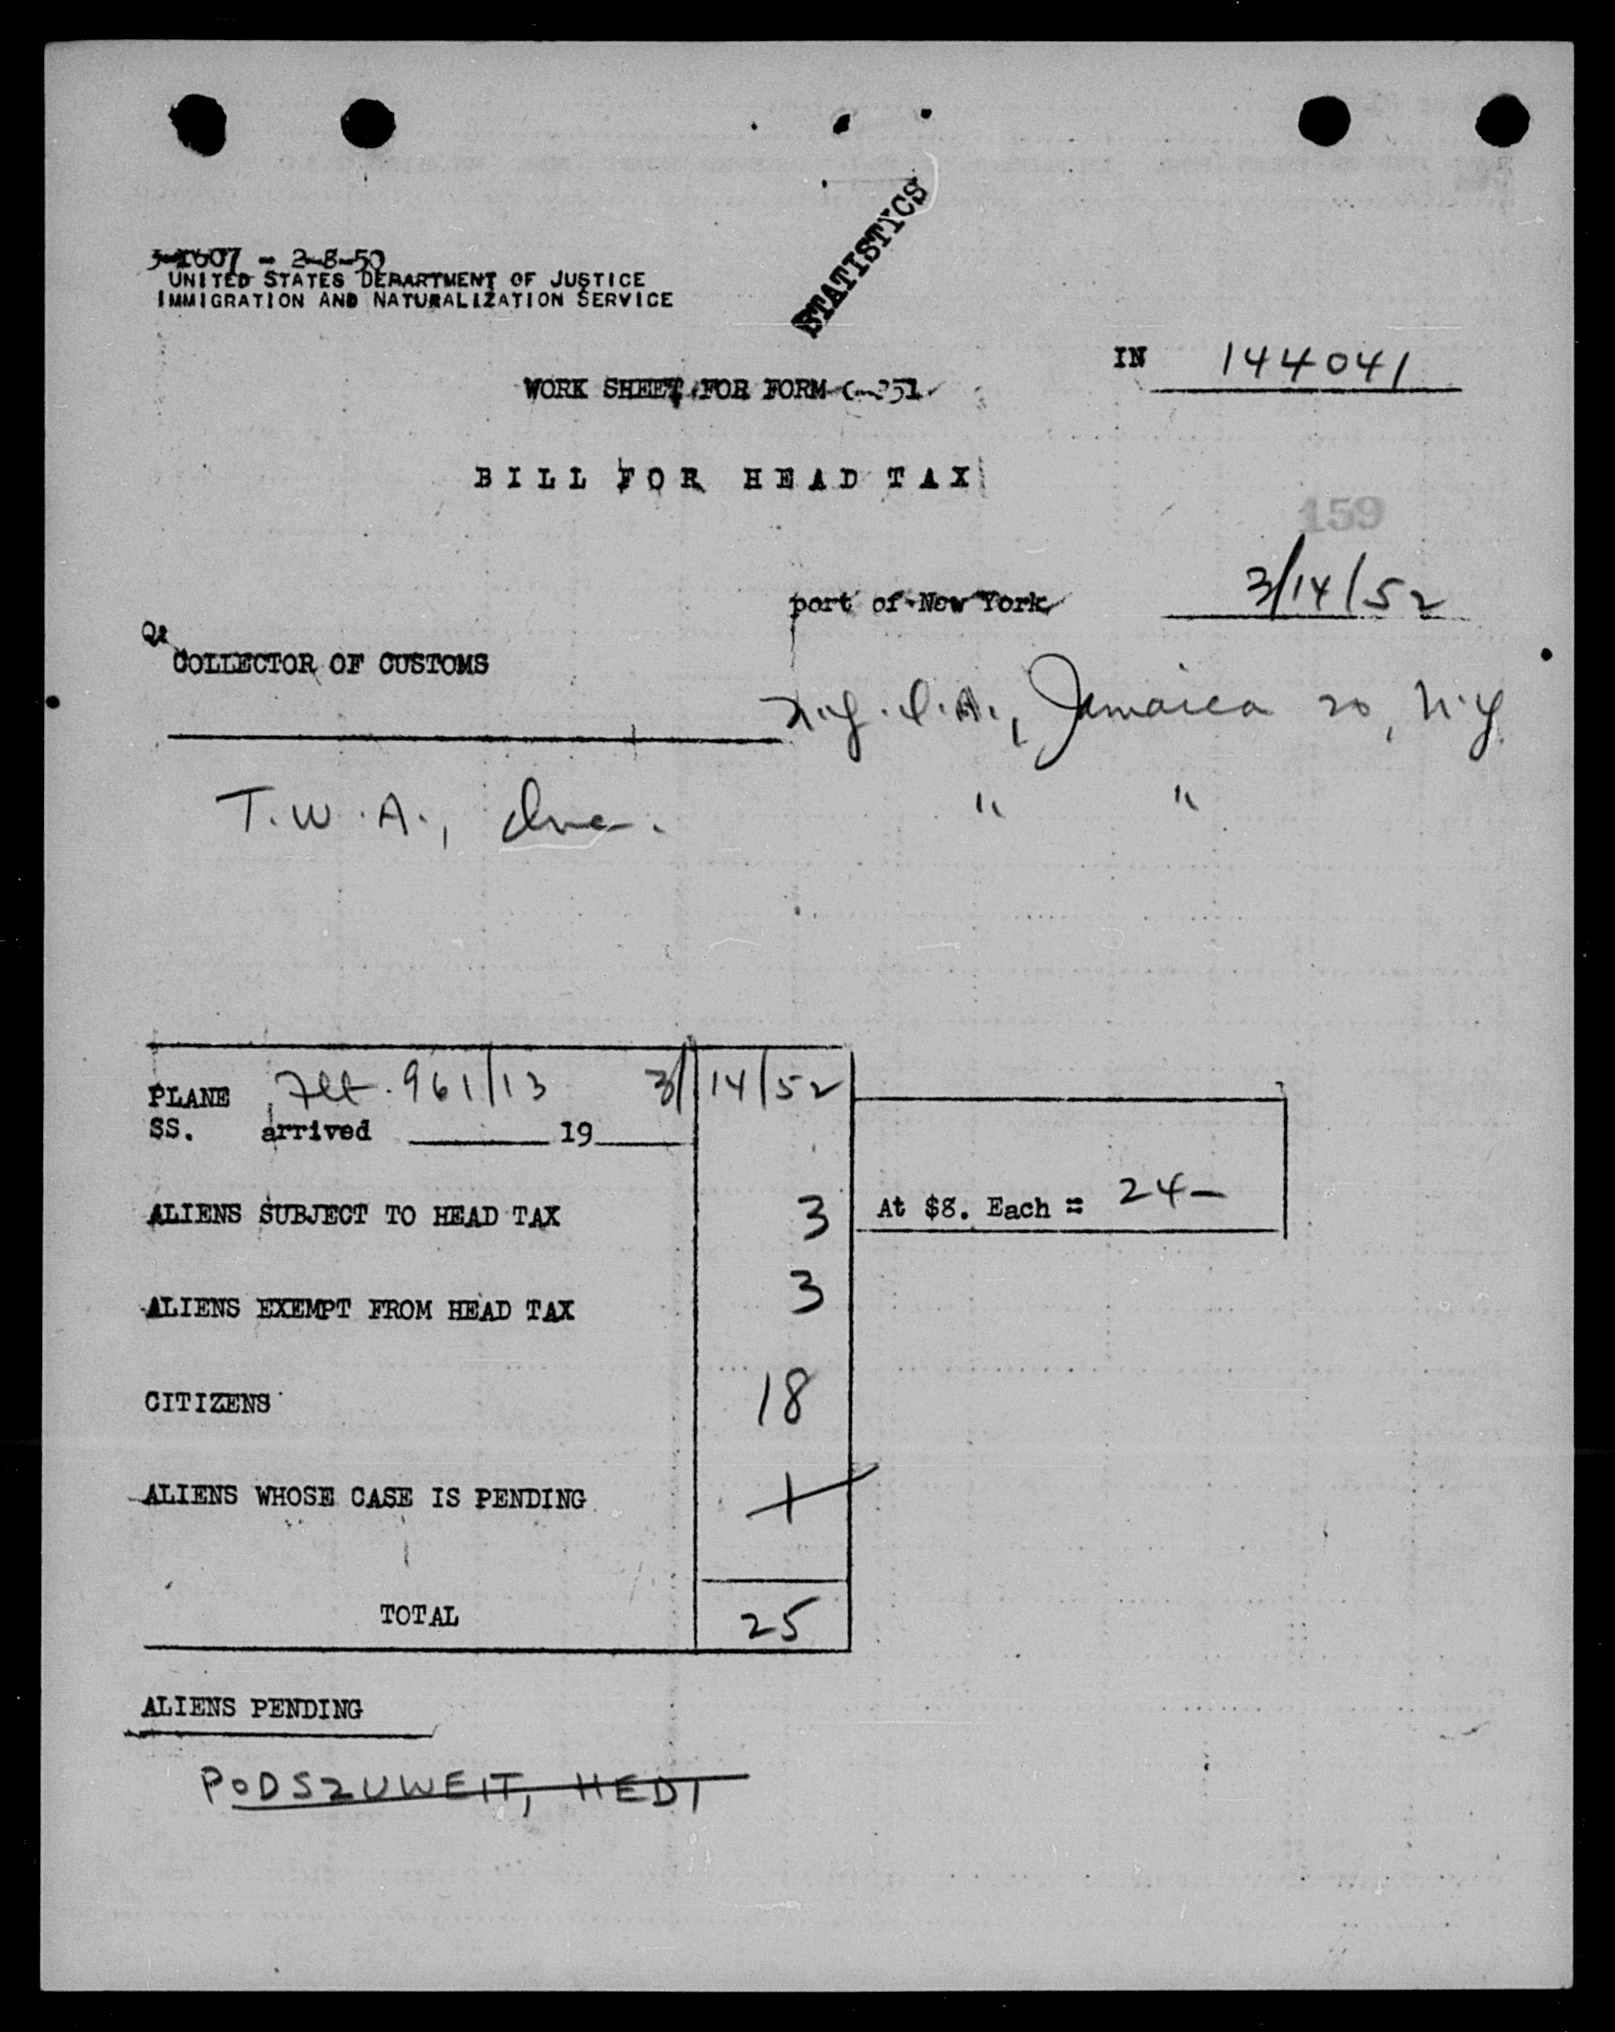 3-1607 - 2-8-50
UNITED STATES DEPARTMENT OF JUSTICE
IMMIGRATION AND NATURALIZATION SERVICE
STATISTICS
IN 144041
WORK SHEET FOR FORM C-251
BILL FOR HEAD TAX
159
port of New York 3/14/52
COLLECTOR OF CUSTOMS
N.Y.I.A., Jamaica 20, N.Y.
T.W.A., Inc. " "
PLANE Flt. 961/13 3/14/52
SS. arrived 19
ALIENS SUBJECT TO HEAD TAX 3 At $8. Each = 24-
ALIENS EXEMPT FROM HEAD TAX 3
CITIZENS 18
ALIENS WHOSE CASE IS PENDING 1
TOTAL 25
ALIENS PENDING
PODSZUWEIT, HEDI